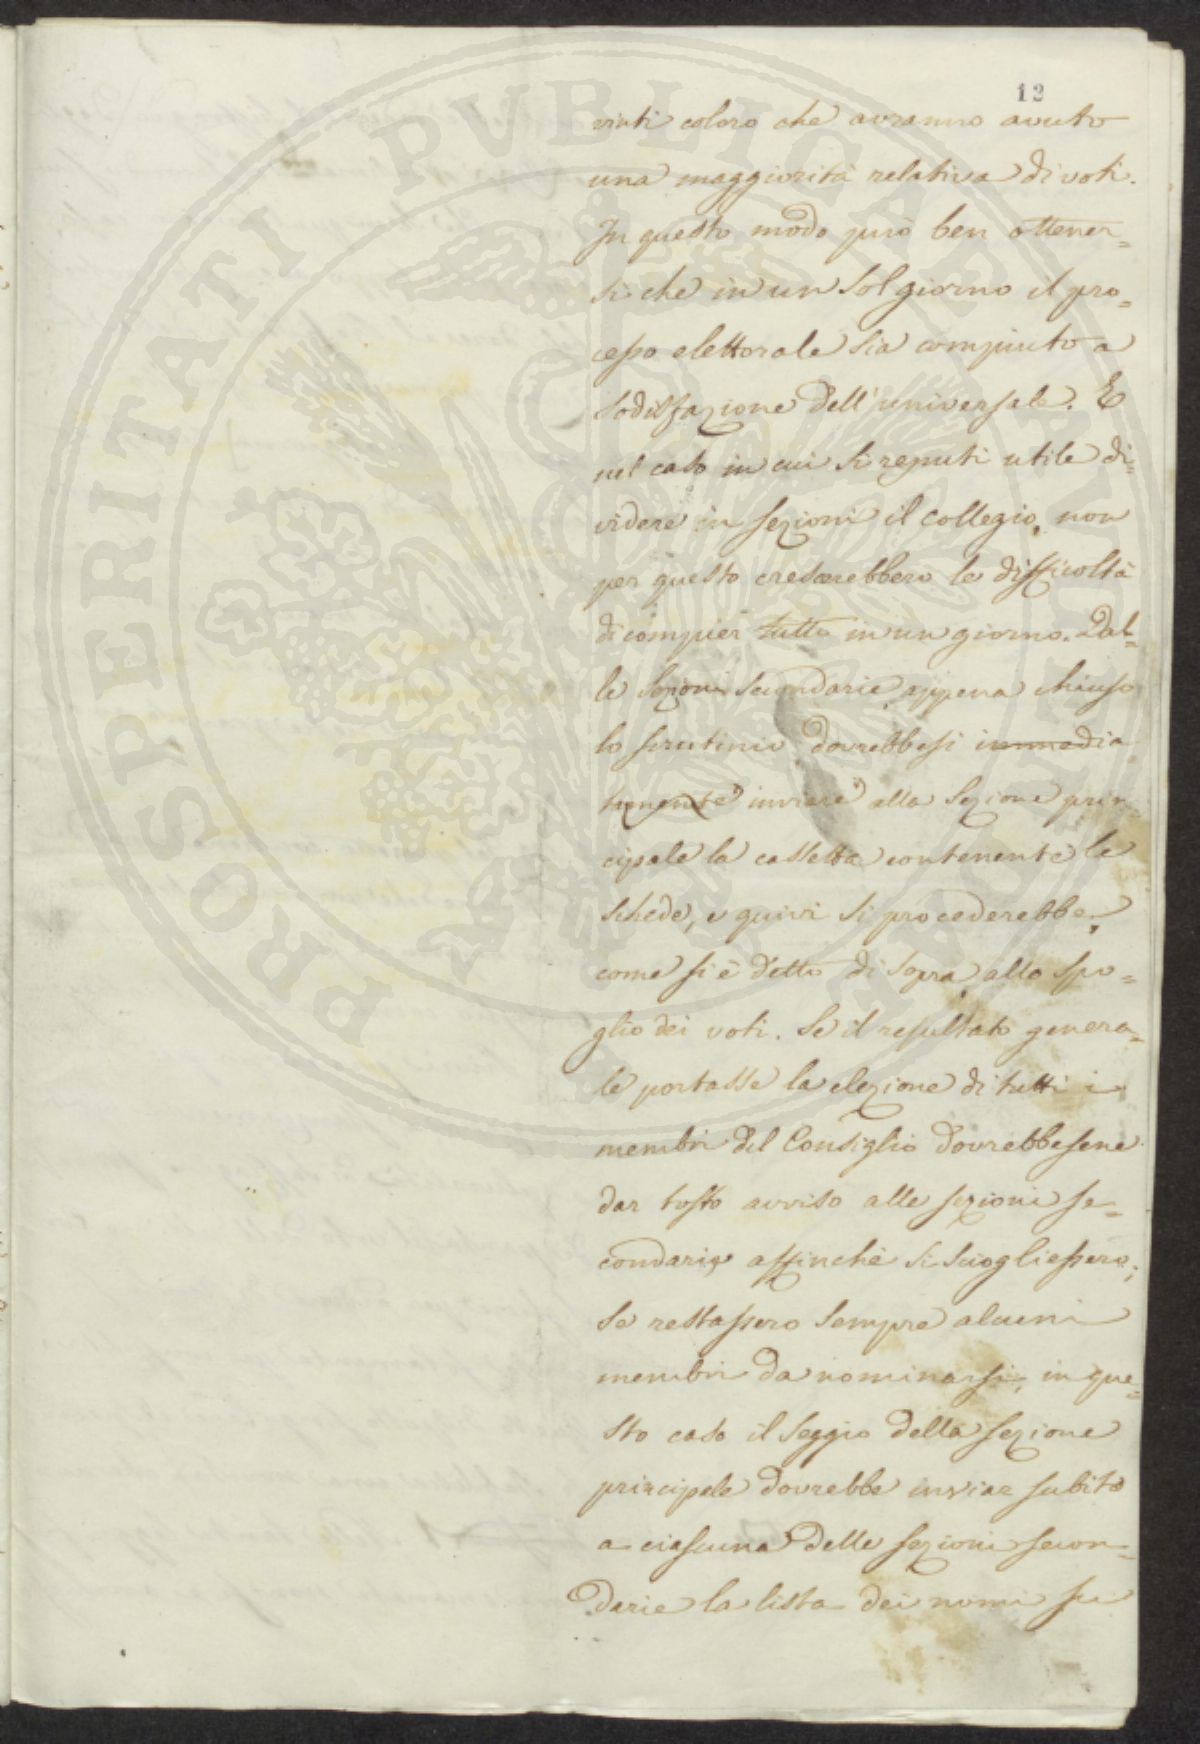 12
vinti coloro che avranno avuto
una maggiorità relativa di voti.
In questo modo può ben ottener=
si che in un sol giorno il pro=
cesso elettorale sia compiuto a
sodisfazione dell'universale. E
nel caso in cui si reputi utile di=
videre in sezioni il collegio, non
per questo crescerebbero le difficoltà
di compier tutto in un giorno. Dal=
le sezioni secondarie, appena chiuso
lo scrutinio dovrebbesi immedia
tamente inviare alla sezione prin=
cipale la cassetta contenente le
schede, e quivi si procederebbe,
come si è detto di sopra, allo spo=
glio dei voti. Se il resultato genera=
le portasse la elezione di tutti i
membri del Consiglio dovrebbesene
dar tosto avviso alle sezioni se=
condarie affinchè si sciogliessero;
se restassero sempre alcuni
membri da nominarsi, in que=
sto caso il seggio della sezione
principale dovrebbe inviar subito
a ciascuna delle sezioni secon=
darie la lista dei nomi su
PROSPERITATI PVBLICAE AVGENDAE